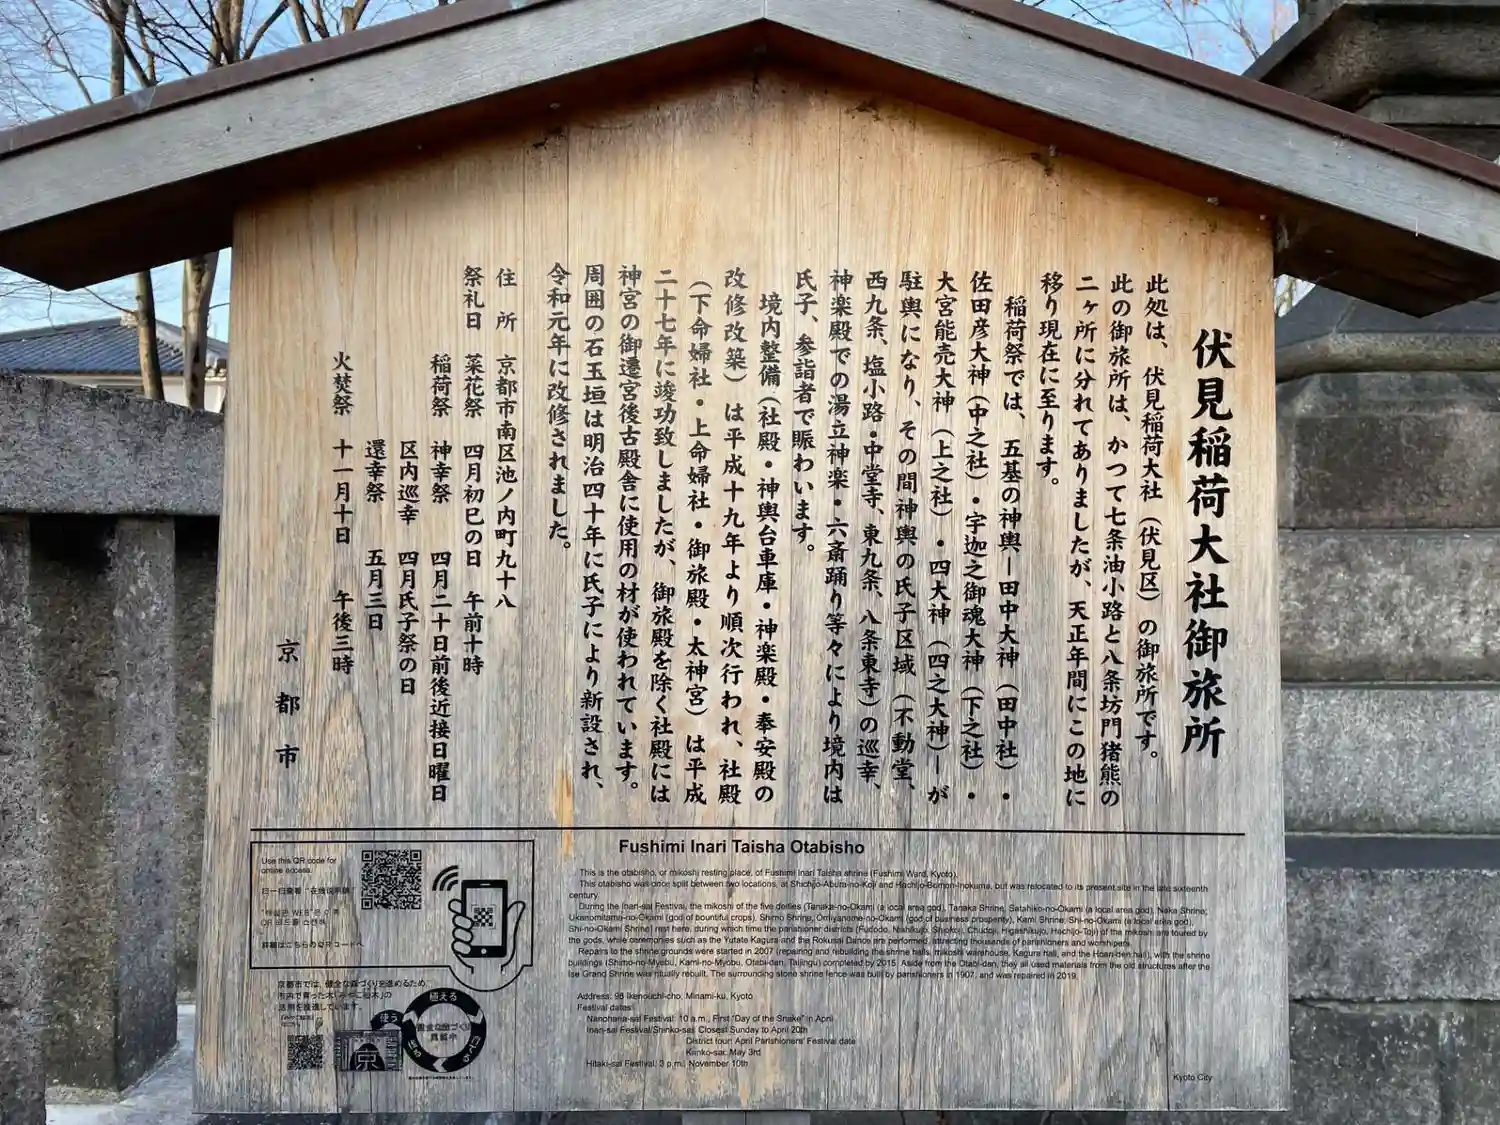 伏見稲荷大社御旅所
此処は、伏見稲荷大社（伏見区）の御旅所です。
此の御旅所は、かつて七条油小路と八条坊門猪熊の
二ヶ所に分れてありましたが、天正年間にこの地に
移り現在に至ります。
稲荷祭では、五基の神輿ー田中大神（田中社）・
佐田彦大神（中之社）・宇迦之御魂大神（下之社）・
大宮能売大神（上之社）・四大神（四之大神）ーが
駐輿になり、その間神輿の氏子区域（不動堂、
西九条、塩小路・中堂寺、東九条、八条東寺）の巡幸、
神楽殿での湯立神楽・六斎踊り等々により境内は
氏子、参詣者で賑わいます。
境内整備（社殿・神輿台車庫・神楽殿・奉安殿の
改修改築）は平成十九年より順次行われ、社殿
（下命婦社・上命婦社・御旅殿・太神宮）は平成
二十七年に竣功致しましたが、御旅殿を除く社殿には
神宮の御遷宮後古殿舎に使用の材が使われています。
周囲の石玉垣は明治四十年に氏子により新設され、
令和元年に改修されました。
住 所 京都市南区池ノ内町九十八
祭礼日 菜花祭 四月初巳の日 午前十時
稲荷祭 神幸祭 四月二十日前後近接日曜日
区内巡幸 四月氏子祭の日
還幸祭 五月三日
火焚祭 十一月十日 午後三時
京都市
Fushimi Inari Taisha Otabisho
This is the otabisho, or mikoshi resting place, of Fushimi Inari Taisha shrine (Fushimi Ward, Kyoto).
This otabisho was once split between two locations, at Shichijo-Abura-no-Koji and Hachijo-Bomon-Inokuma, but was relocated to its present site in the late sixteenth
century.
During the Inari-sai Festival, the mikoshi of the five deities (Tanaka-no-Okami (a local area god), Tanaka Shrine, Satahiko-no-Okami (a local area god), Naka Shrine;
Ukanomitama-no-Okami (god of bountiful crops), Shimo Shrine, Omiyanome-no-Okami (god of business prosperity), Kami Shrine, Shi-no-Okami (a local area god)
Shi-no-Okami Shrine) rest here, during which time the parishioner districts (Fudodo, Nishikujo, Shiokoji, Chudoji, Higashikujo, Hachijo-Toji) of the mikoshi are toured by
the gods, while ceremonies such as the Yutate Kagura and the Rokusai Dance are performed, attracting thousands of parishioners and worshipers.
Repairs to the shrine grounds were started in 2007 (repairing and rebuilding the shrine halls, mikoshi warehouse, Kagura hall, and the Hoan-den hall), with the shrine
buildings (Shimo-no-Myobu, Kami-no-Myobu, Otabi-den, Taijingu) completed by 2015. Aside from the Otabi-den, they all used materials from the old structures after the
Ise Grand Shrine was ritually rebuilt. The surrounding stone shrine fence was built by parishioners in 1907, and was repaired in 2019.
Address: 98 Ikenouchi-cho, Minami-ku, Kyoto
Festival dates:
Nanohana-sai Festival: 10 a.m., First "Day of the Snake" in April
Inari-sai Festival/Shinko-sai: Closest Sunday to April 20th
District tour: April Parishioners' Festival date
Kanko-sai: May 3rd
Hitaki-sai Festival: 3 p.m., November 10th
Kyoto City
Use this QR code for
online access.
扫一扫查看"在线说明牌"
詳細はこちらのQRコードへ
京都市では、健全な森づくりを進めるため、
市内で育った木「みやこ杣木」の
活用を推進しています。
植える
使う
京